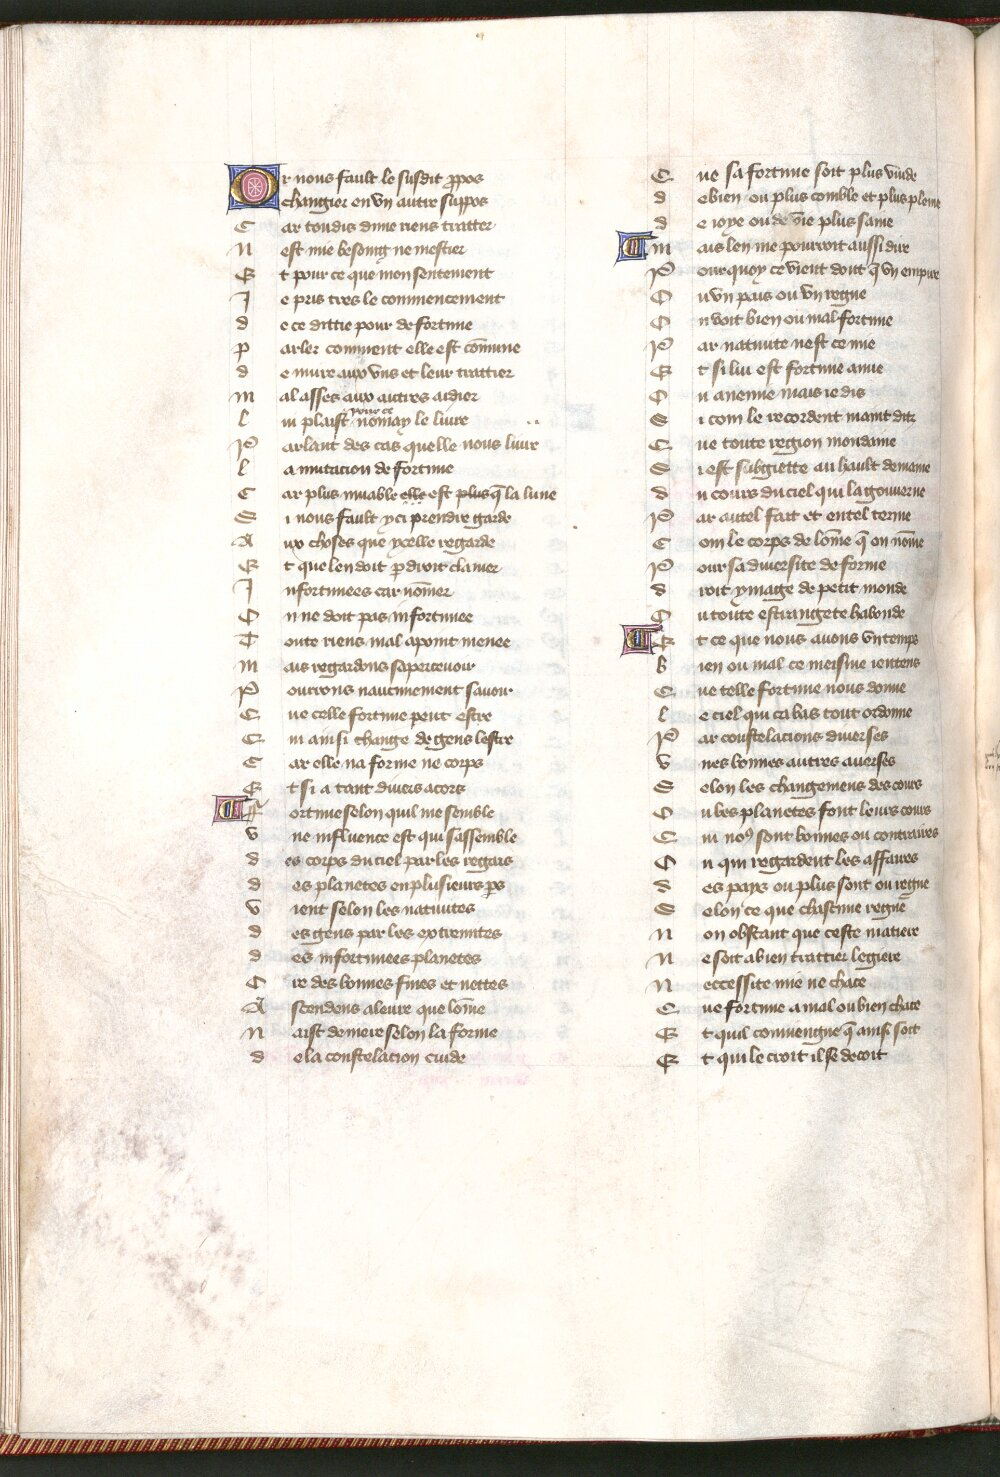 Or nous fault le susdit ꝓpos
changier en vn autre suppos
Car tousdis dune riens traitter
Nest mie besoing ne mestier
Et pour ce que mon sentement
Je pris tres le commencement
de ce dittie pour de fortune
parler comment elle est cōmune
de nuire aux vns et leur traittier
mal asses aux autres aidier
lui plaist pour ce nōmay le liure
Parlant des cas quelle nous liure
la mutacion de fortune
Car plus muable elle est plus q̄ la lune
Si nous fault yci prendre garde
Aux choses que ycelle regarde
Et que len doit ꝑ droit clamer
Infortunees car nōmer
On ne doit pas infortunee
Toute riens mal apoint menee
mais regardons saperceuoir
Pourrons naucunement sauoir
Que celle fortune peut estre
Qui ainsi change de gens lestre
Car elle na forme ne corps
Et si a tant diuers acors
Fortune selon quil me semble
vne influence est qui sassemble
des corps du ciel par les regars
des planetes en plusieurs ꝑs
vient selon les natiuites
des gens par les extremites
des infortunees planetes
Ore des bonnes fines et nettes
Ascendens aleure que lōme
Naist demere selon la forme
de la constelacion cuide
Que sa fortune soit plus vuide
de bien ou plus comble et plus pleine
de ioye ou de vie plus saine
mais len me pourroit aussi dire
Pourquoy ce vient dont q̄ vn empire
Ou vn pais ou vn regne
On voit bien ou mal fortune
Par natiuite nest ce mie
Et si lui est fortune amie
Ou anemie mais ie dis
Si com le recordent maint ditz
Que toute region mondaine
Si est subgiette au hault demaine
du cours du ciel qui la gouuerne
Par autel fait et en tel terme
Com le corps de lōme q̄ on nōme
Pour sa diuersite de forme
droit ymage de petit monde
Ou toute estrangete habonde
Et ce que nous auons vn temps
bien ou mal ce meisme ientens
Que telle fortune nous donne
le ciel qui ca bas tout ordonne
Par constelacions diuerses
vnes bonnes autres auerses
Selon les changemens des cours
Ou les planetes font leurs cours
Qui noꝰ sont bonnes ou contraires
On qui regardent les affaires
des pays ou plus sont ou regne
Selon ce que chascune regne
Non obstant que ceste matiere
Ne soit a bien traittier legiere
Neccessite mie ne chace
Que fortune a mal ou bien chace
Et quil conuiengne q̄ ainsi soit
Et qui le croit il se decoit